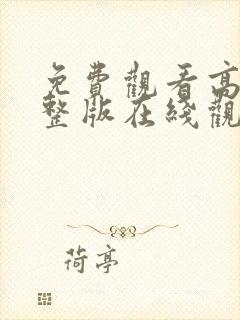 免費觀看高
整版在綫觀
荷亭